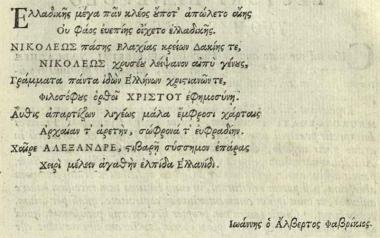 Ἑλλαδικῆς μέγα πᾶν κλέος ὔποτ' ἀπώλετο οἴης
Οὐ φάος εὐεπίης ᾤχετο ἑλλαδικῆς.
ΝΙΚΟΛΕΩΣ πάσης Βλαχίας κρείων Δακίης τε,
ΝΙΚΟΛΕΩΣ χρυσέου λείψανον αἰπὺ γένους,
Γράμματα πάντα ἰδὼν Ἑλλήνων χριστιανῶν τε,
Φιλοσόφους ὀρθοῖ ΧΡΙΣΤΟΥ ἐφημοσύνῃ.
Αὖθις ἀπαρτίζων λιγέως μάλα ἔμφροσι χάρταις
Ἀρχαίαν τ' ἀρετὴν, σώφρονά τ' εὐφραδίην.
Χαῖρε ΑΛΕΞΑΝΔΡΕ, στιβαρῇ σύσσημον ἐπάρας
Χειρὶ μέλειν ἀγαθὴν ἐλπίδα Ἑλλανίδι.
Ἰωάννης ὁ Ἄλβερτος Φαβρίκιος.